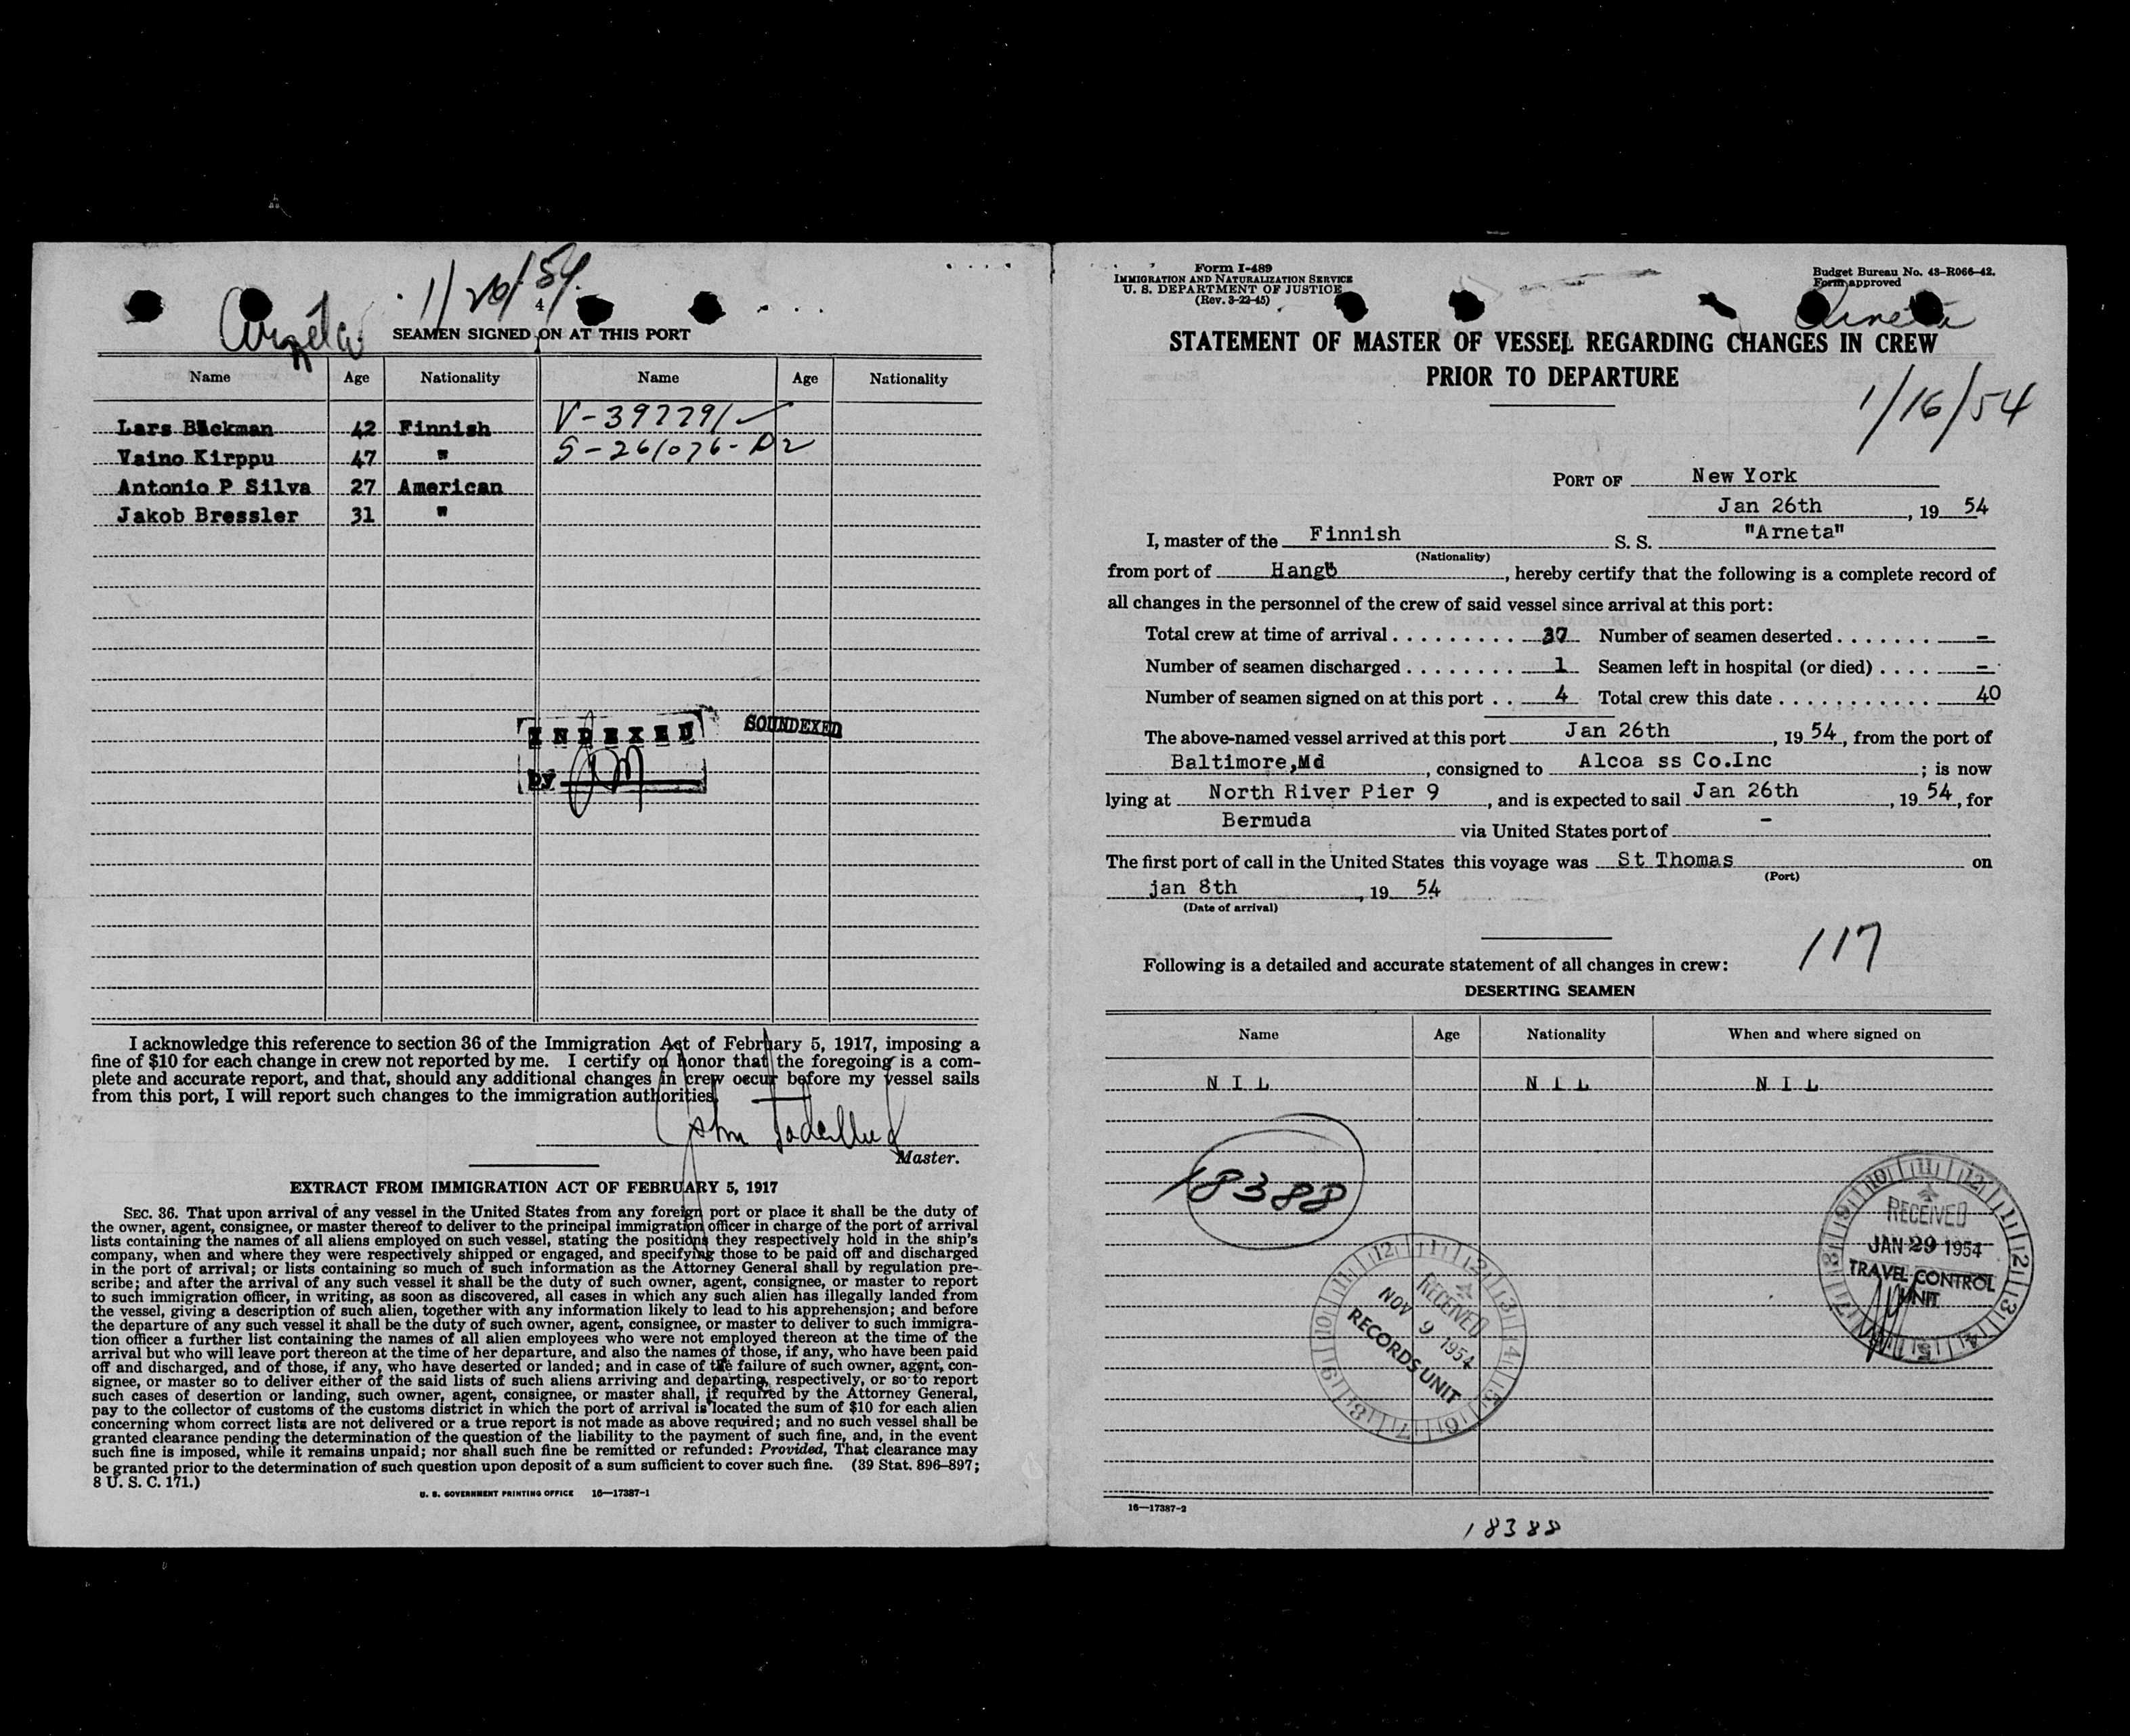 1/20/54.
4
Arneta
SEAMEN SIGNED ON AT THIS PORT
Name Age Nationality Name Age Nationality
Lars Bäckman 42 Finnish V-397791 ✓
Vaino Kirppu 47 " S-261076-D2
Antonio P Silva 27 American
Jakob Bressler 31 "
INDEXED
by
SOUNDEXED
I acknowledge this reference to section 36 of the Immigration Act of February 5, 1917, imposing a
fine of $10 for each change in crew not reported by me. I certify on honor that the foregoing is a com-
plete and accurate report, and that, should any additional changes in crew occur before my vessel sails
from this port, I will report such changes to the immigration authorities.
Master.
EXTRACT FROM IMMIGRATION ACT OF FEBRUARY 5, 1917
SEC. 36. That upon arrival of any vessel in the United States from any foreign port or place it shall be the duty of
the owner, agent, consignee, or master thereof to deliver to the principal immigration officer in charge of the port of arrival
lists containing the names of all aliens employed on such vessel, stating the positions they respectively hold in the ship's
company, when and where they were respectively shipped or engaged, and specifying those to be paid off and discharged
in the port of arrival; or lists containing so much of such information as the Attorney General shall by regulation pre-
scribe; and after the arrival of any such vessel it shall be the duty of such owner, agent, consignee, or master to report
to such immigration officer, in writing, as soon as discovered, all cases in which any such alien has illegally landed from
the vessel, giving a description of such alien, together with any information likely to lead to his apprehension; and before
the departure of any such vessel it shall be the duty of such owner, agent, consignee, or master to deliver to such immigra-
tion officer a further list containing the names of all alien employees who were not employed thereon at the time of the
arrival but who will leave port thereon at the time of her departure, and also the names of those, if any, who have been paid
off and discharged, and of those, if any, who have deserted or landed; and in case of the failure of such owner, agent, con-
signee, or master so to deliver either of the said lists of such aliens arriving and departing, respectively, or so to report
such cases of desertion or landing, such owner, agent, consignee, or master shall, if required by the Attorney General,
pay to the collector of customs of the customs district in which the port of arrival is located the sum of $10 for each alien
concerning whom correct lists are not delivered or a true report is not made as above required; and no such vessel shall be
granted clearance pending the determination of the question of the liability to the payment of such fine, and, in the event
such fine is imposed, while it remains unpaid; nor shall such fine be remitted or refunded: Provided, That clearance may
be granted prior to the determination of such question upon deposit of a sum sufficient to cover such fine. (39 Stat. 896–897;
8 U. S. C. 171.)
U. S. GOVERNMENT PRINTING OFFICE 16—17387-1
Form I-489
IMMIGRATION AND NATURALIZATION SERVICE
U. S. DEPARTMENT OF JUSTICE
(Rev. 3-22-45)
Budget Bureau No. 43-R066-42.
Form approved
Arneta
STATEMENT OF MASTER OF VESSEL REGARDING CHANGES IN CREW
PRIOR TO DEPARTURE
1/16/54
PORT OF New York
Jan 26th, 19 54
I, master of the Finnish S. S. "Arneta"
(Nationality)
from port of Hangö, hereby certify that the following is a complete record of
all changes in the personnel of the crew of said vessel since arrival at this port:
Total crew at time of arrival 37 Number of seamen deserted –
Number of seamen discharged 1 Seamen left in hospital (or died) –
Number of seamen signed on at this port 4 Total crew this date 40
The above-named vessel arrived at this port Jan 26th, 19 54, from the port of
Baltimore,Md, consigned to Alcoa ss Co.Inc; is now
lying at North River Pier 9, and is expected to sail Jan 26th, 19 54, for
Bermuda via United States port of –
The first port of call in the United States this voyage was St Thomas on
(Port)
jan 8th, 19 54
(Date of arrival)
117
Following is a detailed and accurate statement of all changes in crew:
DESERTING SEAMEN
Name Age Nationality When and where signed on
NIL NIL NIL
18388
RECEIVED
JAN 29 1954
TRAVEL CONTROL
UNIT
RECEIVED
NOV 9 1954
RECORDS UNIT
16—17387-2
18388